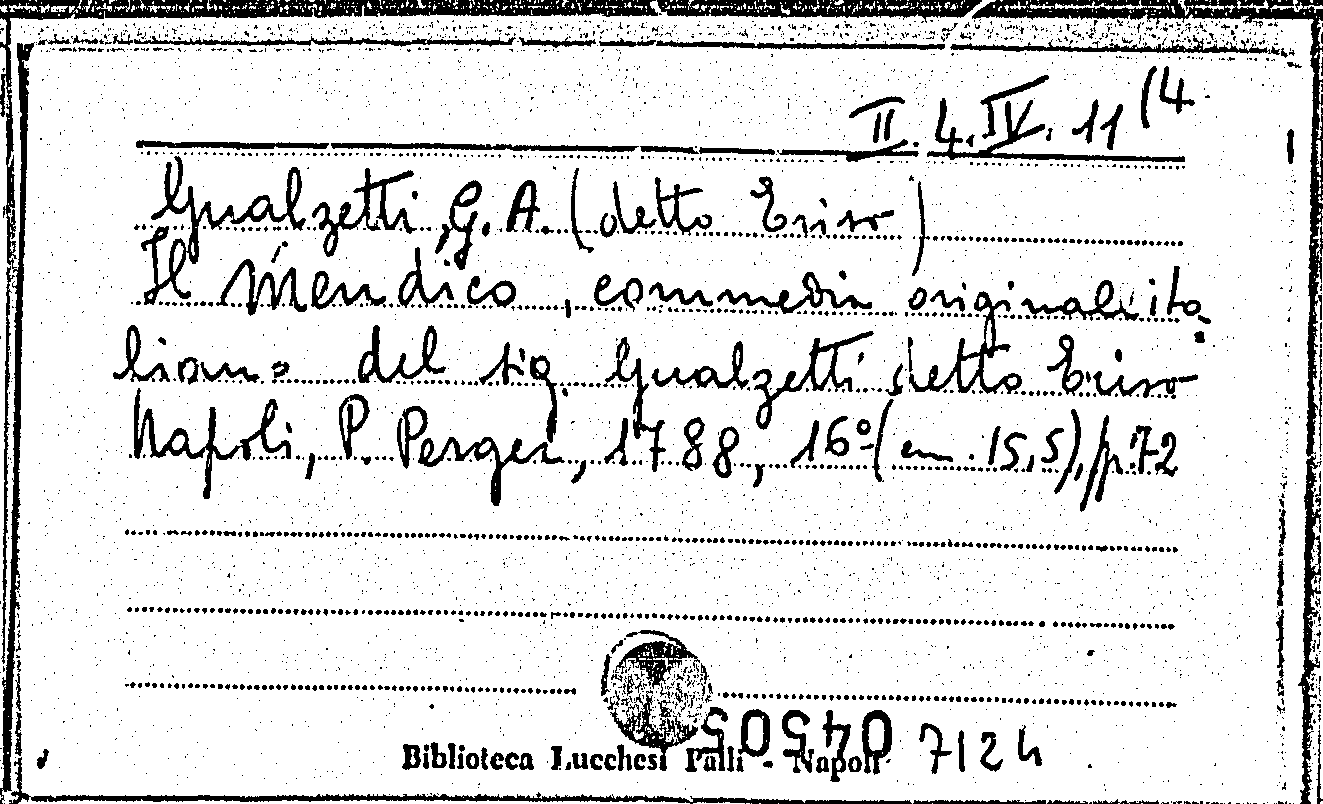 II. 4. IV. 11 (4
Gualzetti, G. A. (detto Eriso)
Il Mendico, commedia originale ita-
liana del sig. Gualzetti detto Eriso
Napoli, P. Perger, 1788, 16º (cm. 15,5), p. 72
04505
Biblioteca Lucchesi Palli - Napoli 7124